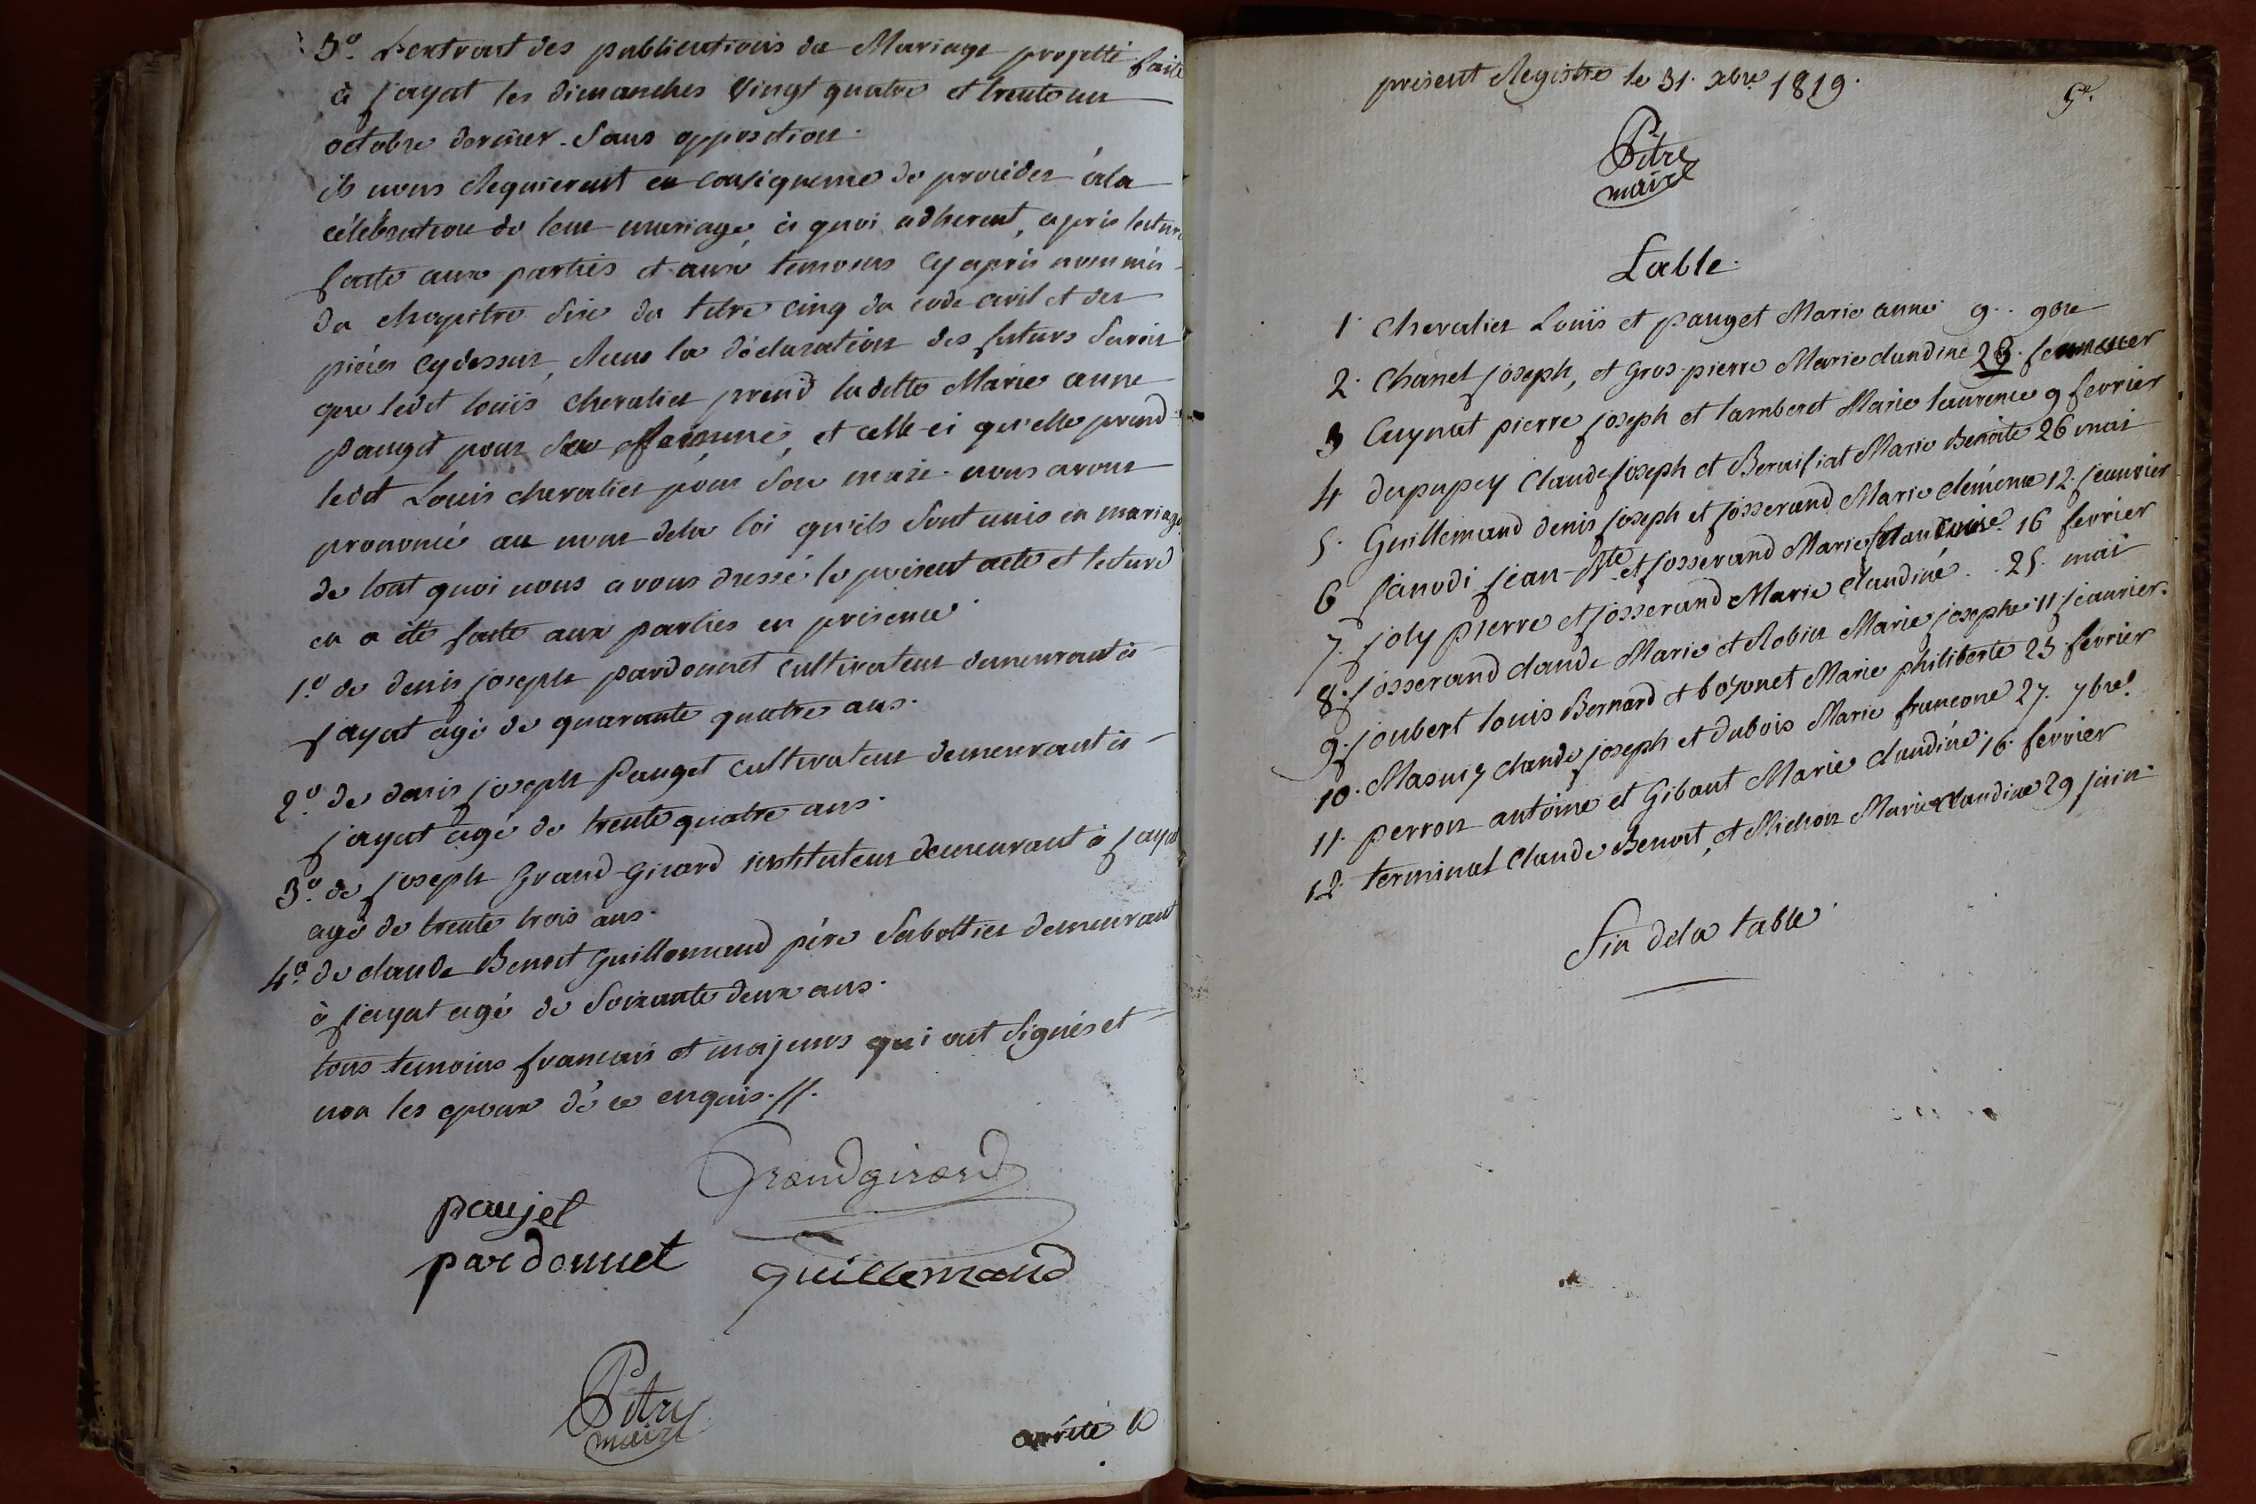 3.º L'extrait des publications de Mariage projetté faite
à jayat les dimanches Vingt quatre et trente un
octobre dernier. Sans opposition.
ils nous Requierent en consequence de proceder à la
célébration de leur mariage, à quoi adherent, après lecture
faite aux parties et aux temoins cy après nommés
du chapitre Six du titre cinq du code civil et des
pièces cy dessus, Reçu la déclaration des futurs Savoir
que ledit louis chevalier prend ladite Marie anne
pauget pour Sa femme, et celle ci qu'elle prend
ledit Louis chevalier pour Son mari. nous avons
prononcé au nom de la loi qu'ils Sont unis en mariage
de tout quoi nous avons dressé le présent acte et lecture
en a été faite aux parties en présence
1.º de denis joseph pardonnet cultivateur demeurant à
jayat agé de quarante quatre ans.
2.º de denis joseph Pauget cultivateur demeurant à
jayat agé de trente quatre ans.
3.º de joseph grand-girard instituteur demeurant à jayat
agé de trente trois ans.
4.º de claude Benoit guillemaud père Sabottier demeurant
à jayat agé de Soixante deux ans.
tous temoins francais et majeurs qui ont Signés et
non les epoux de ce enquis.//.
Grandgirard
paujet
pardonnet
guillemaud
Pitre
maire
arrêté le
présent Registre le 31. xbre 1819.
Pitre
maire
Table.
1. Chevalier Louis et pauget Marie anne 9.. 9bre
2. Chanel joseph, et Gros-pierre Marie claudine 28.
3 Cuynat pierre joseph et lamberet Marie laurence 9 fevrier
4 dupupey Claude joseph et Bernifiat Marie Benoite 26 mai
5. Guillemaud denis joseph et josserand Marie clémence 12. jeanvier
6 janodi jean-Bte et josserand Marie 16 fevrier
7. joly pierre et josserand Marie Claudine. . 25. mai
8. josserand claude Marie et Robin Marie josephe 11 jeanvier.
9. joubert louis Bernard et bozonet Marie philiberte 23 fevrier
10. Masuiy claude joseph et dubois Marie francone 27. 7bre.
11. perron antoine et Gibaut Marie claudine. 16. fevrier
12. terminal Claude Benoit, et Michon Marie claudine 29 juin.
Fin de la table